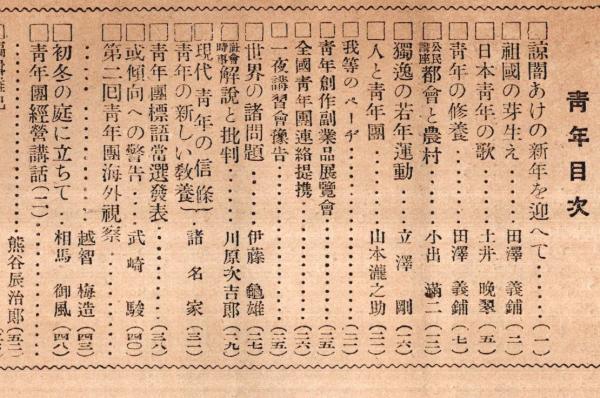 青年目次
□諒闇あけの新年を迎へて………(一)
□祖國の芽生え………田澤義鋪(二)
□日本青年の歌………土井晩翠(五)
□青年の修養………田澤義鋪(七)
□公民講座 都會と農村………小出滿二(一三)
□獨逸の若年運動………立澤剛(一六)
□人と青年團………山本瀧之助(二二)
□我等のページ………(二二)
□青年創作副業品展覽會………(二五)
□全國青年團連絡提携………(二六)
□一夜講習會豫告………(二五)
□世界の諸問題………伊藤龜雄(二七)
□社會時事 解說と批判………川原次吉郎(二九)
□現代青年の信條
□青年の新しい教養}諸名家(三二)
□青年團標語當選發表………(三八)
□或傾向への警告………武崎駿(四〇)
□第二回青年團海外視察………
………越智梅造(四三)
□初冬の庭に立ちて………相馬御風(四八)
□青年團經營講話(二)………
熊谷辰治郎(五二)